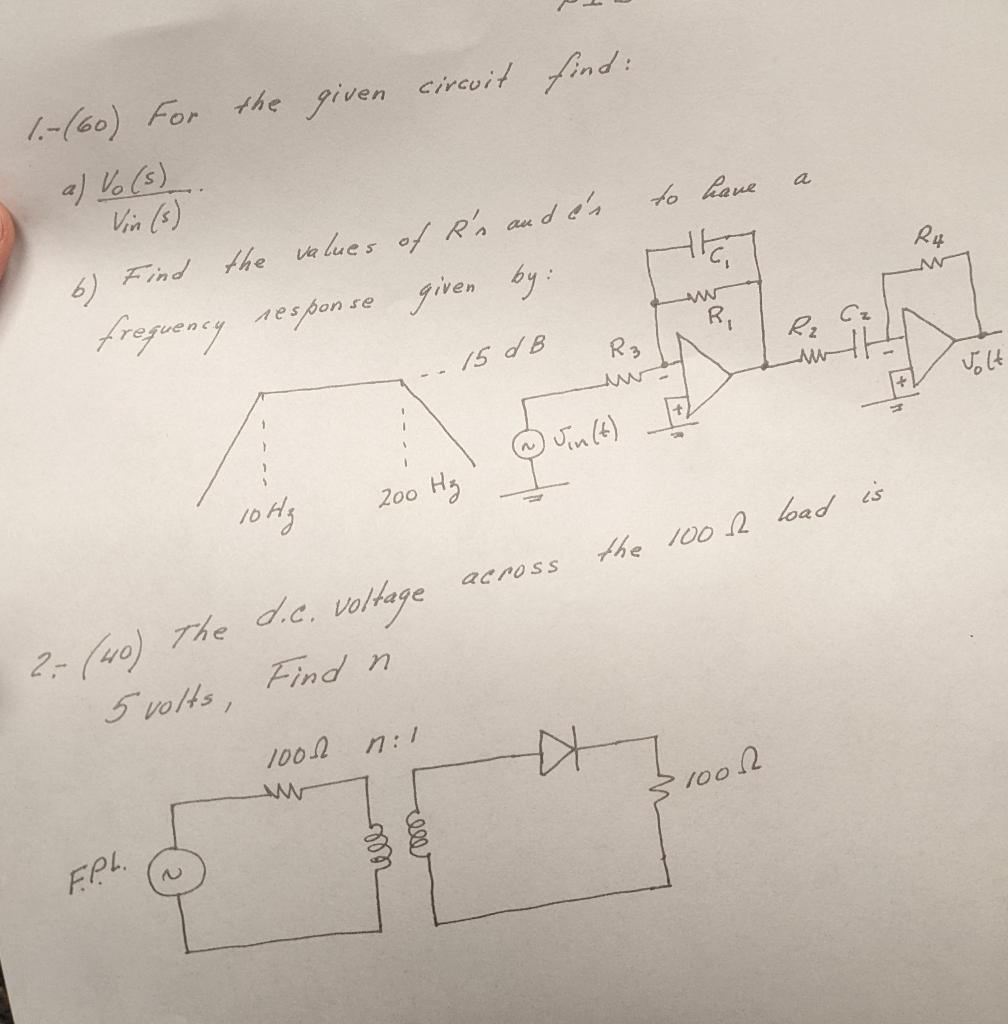 1.-(60) For the given circuit find:
a) Vo(s)
Vin(s)
b) Find the values of R's and c's to have a
frequency response given by:
-- 15 dB
10 Hz
200 Hz
C1
R1
R3
R2
C2
R4
-
+
-
+
vin(t)
vo(t
2.- (40) The d.c. voltage across the 100 Ω load is
5 volts, Find n
100Ω n:1
100Ω
F.P.L.